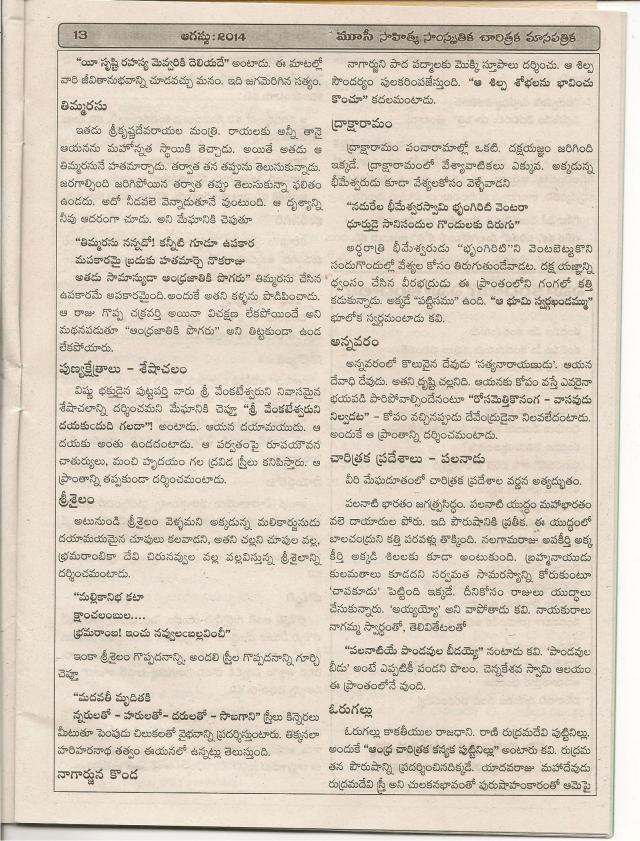 13 ఆగస్టు:2014 మూసీ సాహిత్య సాంస్కృతిక చారిత్రక మాసపత్రిక
"యీ సృష్టి రహస్య మెవ్వరికి దెలియదే" అంటాడు. ఈ మాటల్లో
వారి జీవితానుభవాన్ని చూడవచ్చు మనం. ఇది జగమెరిగిన సత్యం.
తిమ్మరసు
ఇతడు శ్రీకృష్ణదేవరాయల మంత్రి. రాయలకు అన్నీ తానై
ఆయనను మహోన్నత స్థాయికి తెచ్చాడు. అయితే అతడు ఆ
తిమ్మరసునే హతమార్చాడు. తర్వాత తన తప్పును తెలుసుకున్నాడు.
జరగాల్సింది జరిగిపోయిన తర్వాత తప్పు తెలుసుకున్నా ఫలితం
ఉండదు. అదో నీడవలె వెన్నాడుతూనే వుంటుంది. ఆ దృశ్యాన్ని
నీవు ఆదరంగా చూడు. అని మేఘానికి చెపుతూ
"తిమ్మరసు నన్నదో! కన్నీటి గూడూ ఉపకార
మపకారమై బ్రదుకు హతమార్చె నొకరాజు
అతడు సామాన్యుడా ఆంధ్రజాతికి పొగరు" తిమ్మరసు చేసిన
ఉపకారమే అపకారమైంది.అందుకే అతని కళ్ళను పొడిపించాడు.
ఆ రాజు గొప్ప చక్రవర్తి అయినా విచక్షణ లేకపోయిందే అని
మథనపడుతూ "ఆంధ్రజాతికి పొగరు" అని తిట్టకుండా ఉండ
లేకపోయారు.
పుణ్యక్షేత్రాలు - శేషాచలం
విష్ణు భక్తుడైన పుట్టపర్తి వారు శ్రీ వేంకటేశ్వరుని నివాసమైన
శేషాచలాన్ని దర్శించమని మేఘానికి చెప్తూ "శ్రీ వేంకటేశ్వరుని
దయకుదుది గలదా"! అంటాడు. ఆయన దయామయుడు. ఆ
దయకు అంతు ఉండదంటాడు. ఆ పర్వతంపై రూపయౌవన
చాతుర్యులు, మంచి హృదయం గల ద్రవిడ స్త్రీలు కనిపిస్తారు. ఆ
ప్రాంతాన్ని తప్పకుండా దర్శించమంటాడు.
శ్రీశైలం
అటునుండి శ్రీశైలం వెళ్ళమని అక్కడున్న మలికార్జునుడు
దయామయమైన చూపులు కలవాడని, అతని చల్లని చూపుల వల్ల,
భ్రమరాంబికా దేవి చిరునవ్వుల వల్ల పల్లవిస్తున్న శ్రీశైలాన్ని
దర్శించమంటాడు.
"మల్లికానిభ కటా
క్షాంచలంబుల....
భ్రమరాంబ! ఇంచు నవ్వులంబల్లవించీ"
ఇంకా శ్రీశైలం గొప్పదనాన్ని, అందలి స్త్రీల గొప్పదనాన్ని గూర్చి
చెప్తూ
"మదవతీ మృదితకి
న్నరులతో - హరులతో- దరులతో - సొబగాని" స్త్రీలు కిన్నెరలు
మీటుతూ పెంపుడు చిలుకలతో వైభవాన్ని ప్రదర్శిస్తుంటారు. తిక్కనలా
హరిహరనాథ తత్వం ఈయనలో ఉన్నట్లు తెలుస్తుంది.
నాగార్జున కొండ
నాగార్జుని పాద పద్మాలకు మొక్కి స్తూపాలు దర్శించు. ఆ శిల్ప
సౌందర్యం పులకరింపజేస్తుంది. "ఆ శిల్ప శోభలను భావించు
కొంచూ" కదలమంటాడు.
ద్రాక్షారామం
ద్రాక్షారామం పంచారామాల్లో ఒకటి. దక్షయజ్ఞం జరిగింది
ఇక్కడే. ద్రాక్షారామంలో వేశ్యావాటికలు ఎక్కువ. అక్కడున్న
భీమేశ్వరుడు కూడా వేశ్యలకోసం వెళ్ళేవాడని
"నడురేల భీమేశ్వరస్వామి భృంగిరిటి వెంటరా
ధూర్తుడై సానిసందుల గొందులకు దిరుగు"
అర్ధరాత్రి భీమేశ్వరుడు "భృంగిరిటి"ని వెంటబెట్టుకొని
సందుగొందుల్లో వేశ్యల కోసం తిరుగుతుండేవాడట. దక్ష యజ్ఞాన్ని
ధ్వంసం చేసిన వీరభద్రుడు ఈ ప్రాంతంలోని గంగలో కత్తి
కడుకున్నాడు. అక్కడే "పట్టిసము" ఉంది. "ఆ భూమి స్వర్గఖండమ్ము"
భూలోక స్వర్గమంటాడు కవి.
అన్నవరం
అన్నవరంలో కొలువైన దేవుడు 'సత్యనారాయణుడు'. ఆయన
దేవాధి దేవుడు. అతని దృష్టి చల్లనిది. ఆయనకు కోపం వస్తే ఎవరైనా
భయపడి పారిపోవాల్సిందేనంటూ "రోసమెత్తికొనంగ - వాసవుడు
నిల్వడట" - కోపం వచ్చినప్పుడు దేవేంద్రుడైనా నిలవలేదంటాడు.
అందుకే ఆ ప్రాంతాన్ని దర్శించమంటాడు.
చారిత్రక ప్రదేశాలు - పలనాడు
వీరి మేఘదూతంలో చారిత్రక ప్రదేశాల వర్ణన అత్యద్భుతం.
పలనాటి భారతం జగత్ప్రసిద్ధం. పలనాటి యుద్ధం మహాభారతం
వలె దాయాదుల పోరు. ఇది పౌరుషానికి ప్రతీక. ఈ యుద్ధంలో
బాలచంద్రుని కత్తి పరవళ్లు తొక్కింది. నలగామరాజు అపకీర్తి అక్క
కీర్తి అక్కడి శిలలకు కూడా అంటుకుంది. బ్రహ్మనాయుడు
కులమతాలు కూడదని సర్వమత సామరస్యాన్ని కోరుకుంటూ
'చాపకూడు' పెట్టింది ఇక్కడే. దీనికోసం రాజులు యుద్ధాలు
చేసుకున్నారు. 'అయ్యయ్యో' అని వాపోతాడు కవి. నాయకురాలు
నాగమ్మ స్వార్థంతో, తెలివితేటలతో
"పలనాటియే పాండవుల బీడయ్యె" నంటాడు కవి. 'పాండవుల
బీడు' అంటే ఎప్పటికీ పండని పొలం. చెన్నకేశవ స్వామి ఆలయం
ఈ ప్రాంతంలోనే వుంది.
ఓరుగల్లు
ఓరుగల్లు కాకతీయుల రాజధాని. రాణి రుద్రమదేవి పుట్టినిల్లు.
అందుకే "ఆంధ్ర చారిత్రక కన్యక పుట్టినిల్లు" అంటారు కవి. రుద్రమ
తన పౌరుషాన్ని ప్రదర్శించినదిక్కడే. యాదవరాజు మహాదేవుడు
రుద్రమదేవి స్త్రీ అని చులకనభావంతో పురుషాహంకారంతో ఆమెపై